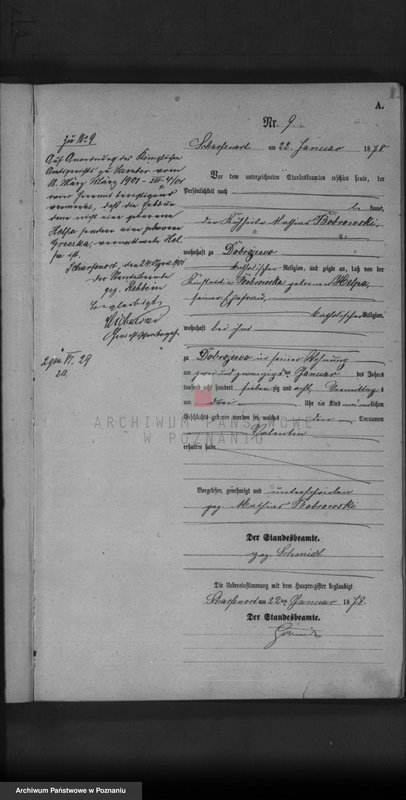 A.
Nr. 9
Scharfenort am 22. Januar 1878
Vor dem unterzeichneten Standesbeamten erschien heute, der
Persönlichkeit nach
be kannt,
der Mathias Bobrowski,
wohnhaft zu Dobrojewo
katholischer Religion, und zeigte an, daß von der
Konstantia Bobrowska geborene Holpa,
seiner Ehefrau,
katholischer Religion,
wohnhaft bei ihm
zu Dobrojewo in seiner Wohnung
am zwei und zwanzigsten Januar des Jahres
tausend acht hundert sieben zig und acht, Vormittags
um drei Uhr ein Kind männlichen
Geschlechts geboren worden sei, welches den Vornamen
Valentin
erhalten habe
Vorgelesen, genehmigt und unterschrieben
gez. Mathias Bobrowski
Der Standesbeamte.
gez. Schmidt
Die Uebereinstimmung mit dem Hauptregister beglaubigt
Scharfenort am 22ten Januar 1878.
Der Standesbeamte.
zu No 9
Auf Anordnung des Königlichen
Amtsgerichts zu Samter vom
18. März 1901
wird hiermit berichtigend
vermerkt, daß die
nicht eine geborene
Holpa sondern eine geborene
ist.
Scharfenort, den 24. April 1901
Der Standesbeamte
gez.
Beglaubigt
VI. 29
20.
ARCHIWUM PAŃSTWOWE
W POZNANIU
Archiwum Państwowe w Poznaniu